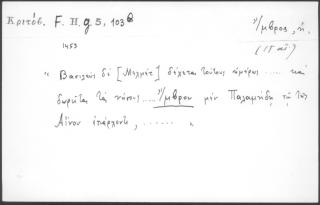 Κριτόβ. F. H. g 5, 103β Ἴμβρος, ἡ.
1453 (ΙΓ αἰ)
“ Βασιλεὺς δὲ [Μεχμὲτ] δέχεται τούτους ἡμέρως ..... καὶ
δωρεῖται τὰς νήσους .... Ἴμβρον μὲν Παλαμήδῃ τῷ τῆς
Αἴνου ἐπάρχοντι, ....... „